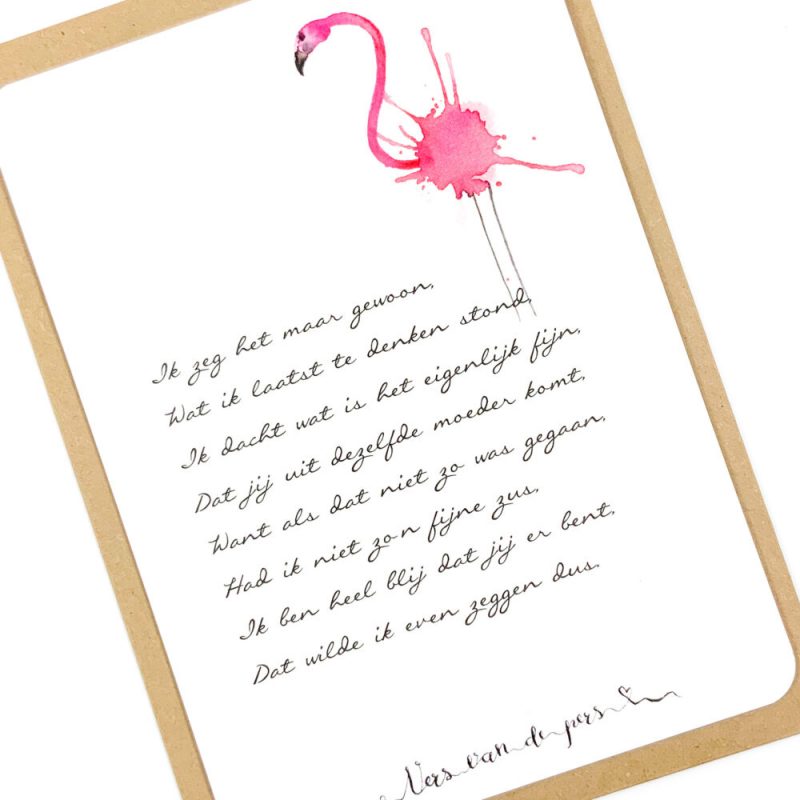 Ik zeg het maar gewoon,
Wat ik laatst te denken stond,
Ik dacht wat is het eigenlijk fijn,
Dat jij uit dezelfde moeder komt,
Want als dat niet zo was gegaan,
Had ik niet zo'n fijne zus,
Ik ben heel blij dat jij er bent,
Dat wilde ik even zeggen dus.
Vers van de pers